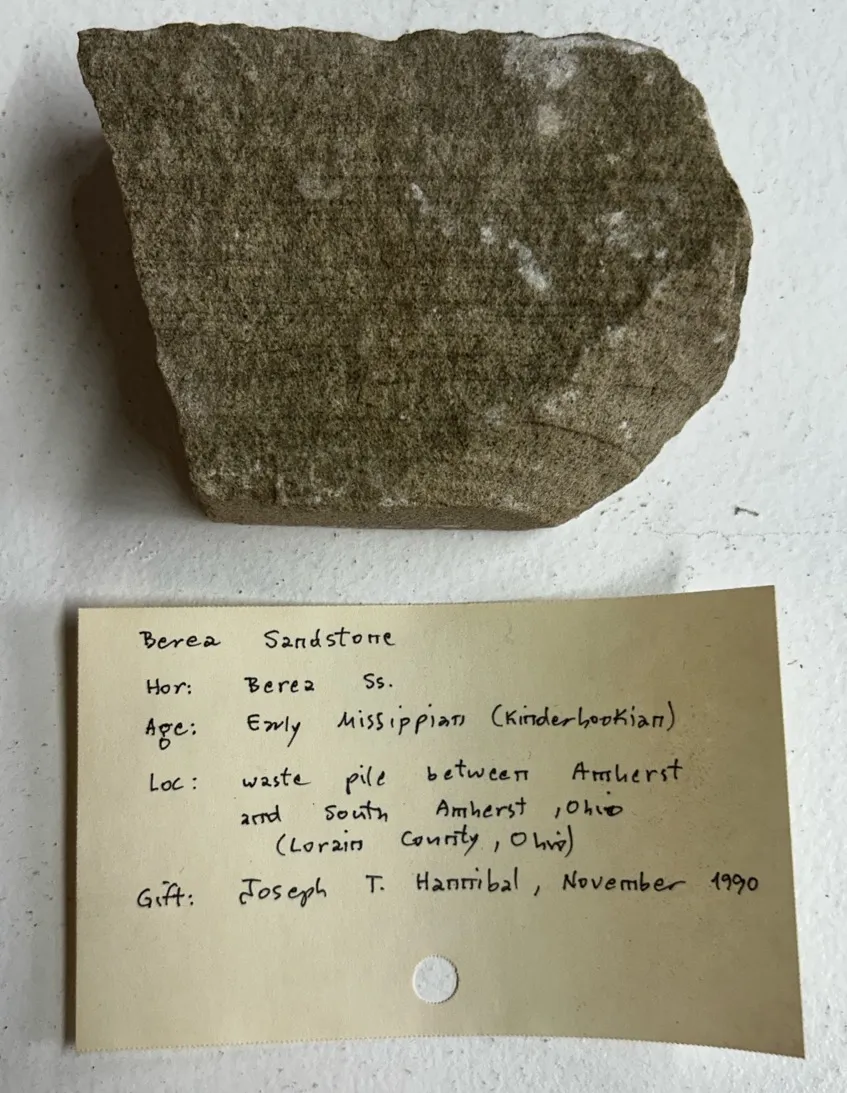 Berea Sandstone
Hor: Berea Ss.
Age: Early Missippian (Kinderhookian)
Loc: waste pile between Amherst
and South Amherst, Ohio
(Lorain County, Ohio)
Gift: Joseph T. Hannibal, November 1990